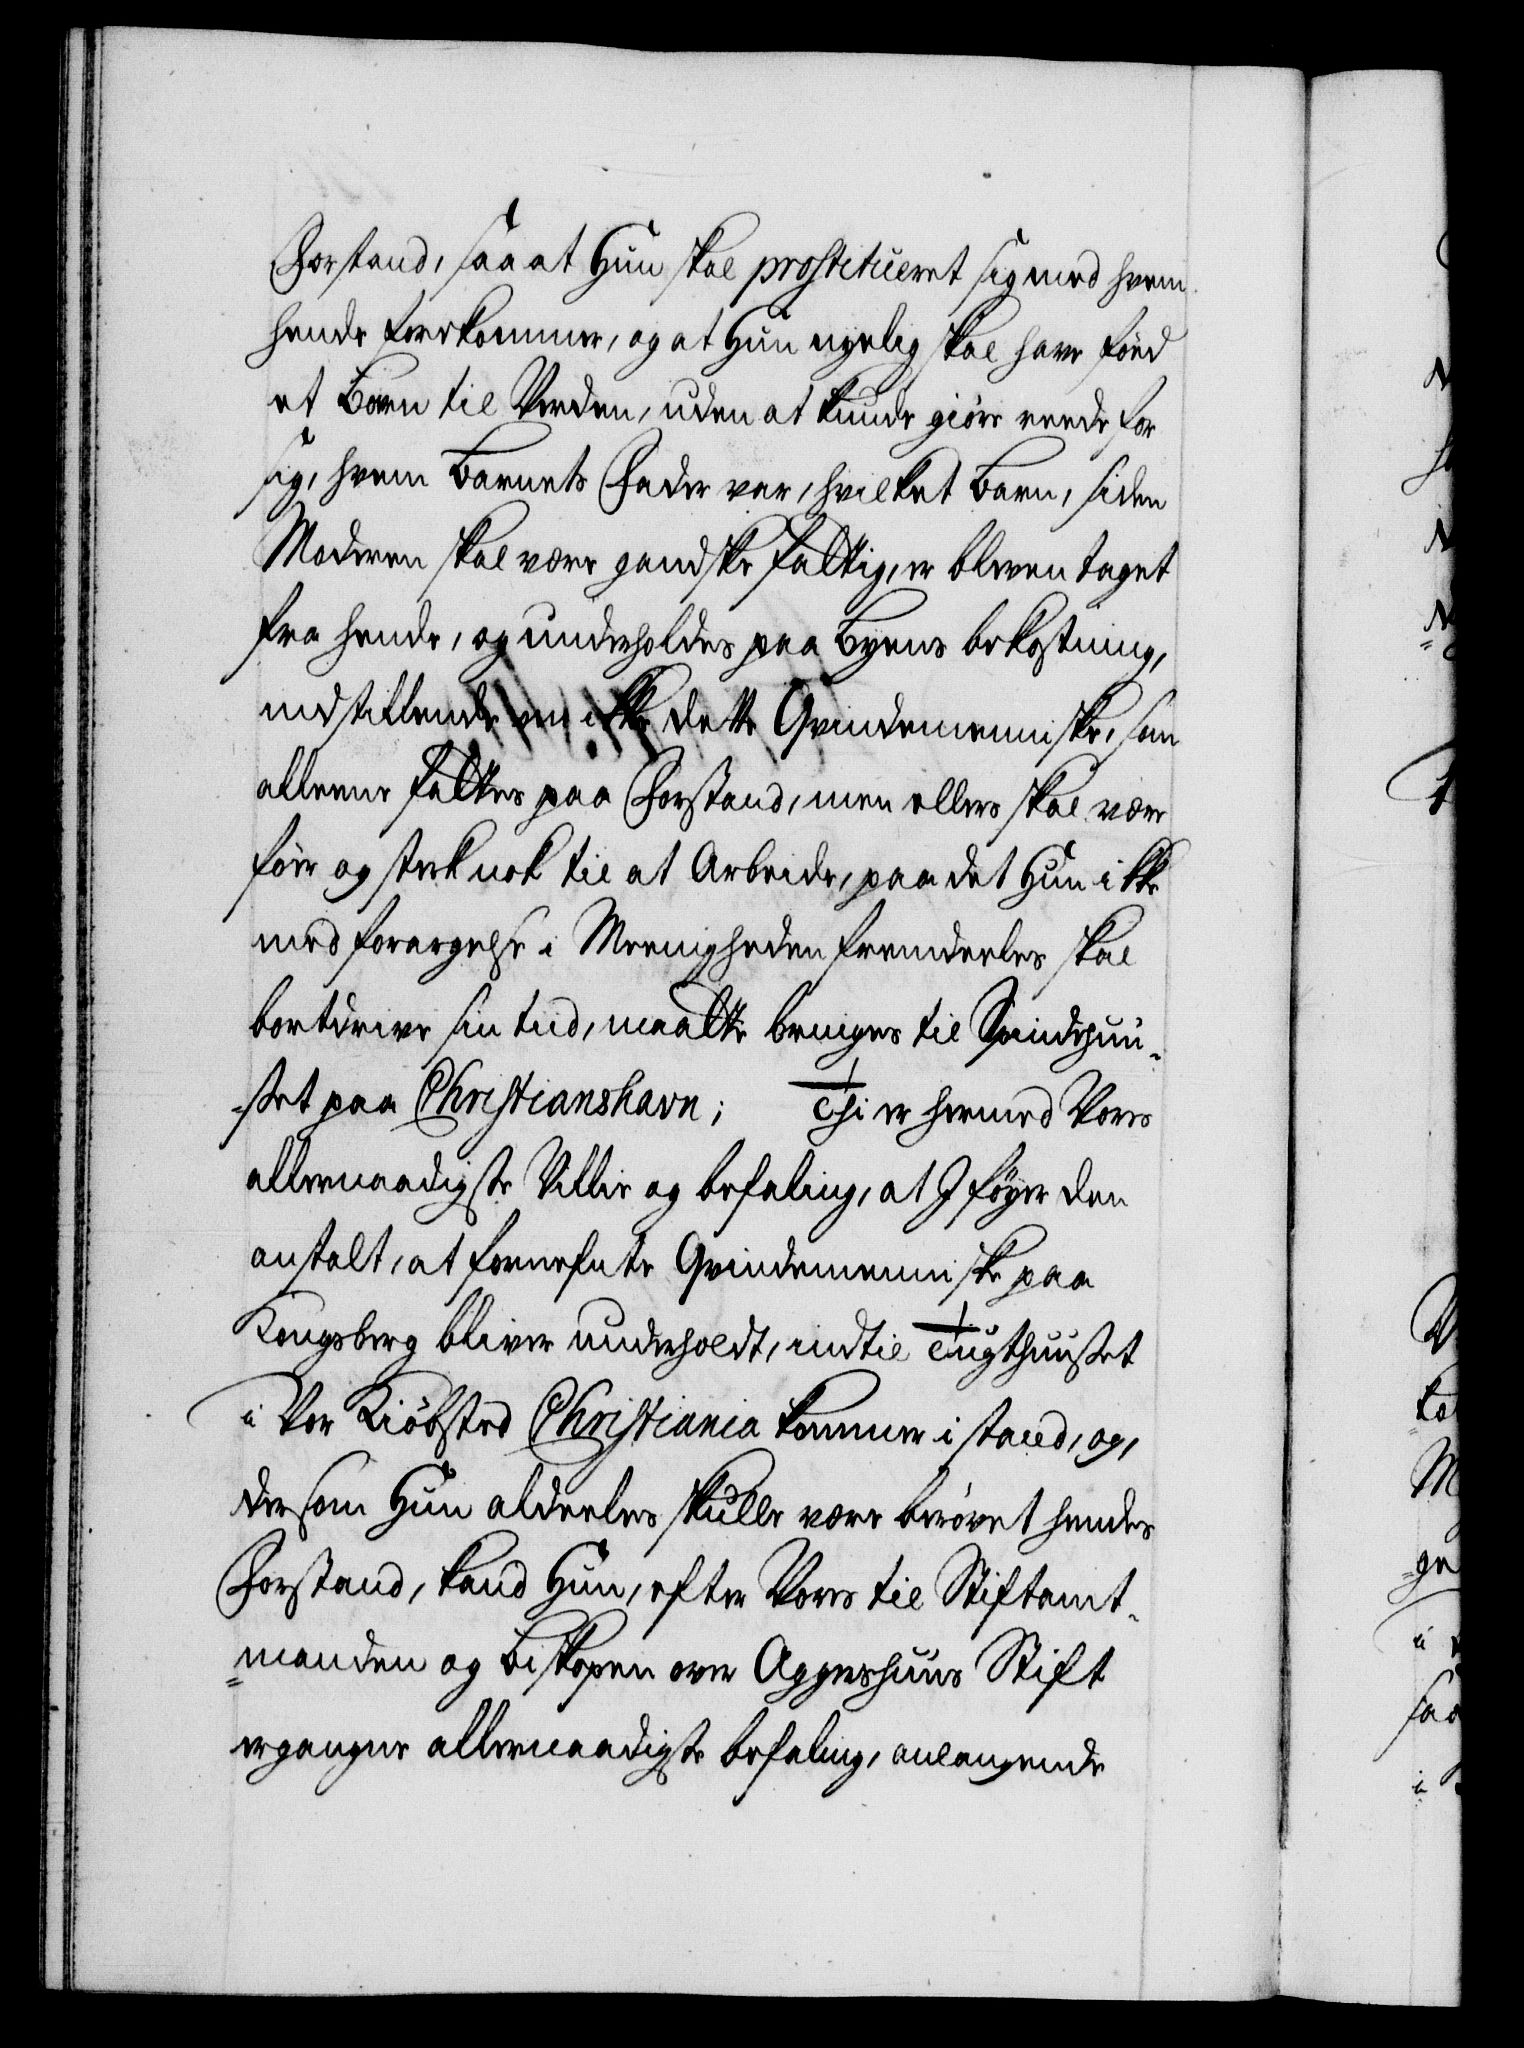 Forstand, saa at Hun skal prostitueret sig med hvem
hende forekommer, og at Hun nyelig skal have föed
et Barn til Verden, uden at kunde giöre reede for
sig, hvem Barnets Fader var, hvilket Barn, siden
Moderen skal være gandske fattig, er bleven taget
fra hende, og underholdes paa Byens bekostning,
indstillende om ikke dette Qvindemenniske, som
alleene fattes paa Forstand, men ellers skal være
föer og sterk nok til at Arbeide, paa det Hun ikke
med forargelse i Meenigheden fremdeeles skal
bortdrive sin tiid, maatte bringes til Spindehuu-
-set paa Christianshavn; Thi er hermed Vores
allernaadigste Villie og befaling, at I föyer den
anstalt, at fornefnte Qvindemenniske paa
Kongsberg bliver underholdt, indtil Tugthuuset
i Vor Kiöbsted Christiania kommer i stand, og,
dersom Hun aldeeles skulle være berövet hendes
Forstand, kand Hun, efter Vores til Stiftamt-
=manden og Biskopen over Aggershuus Stift
ergangne allernaadigste befaling, anlangende